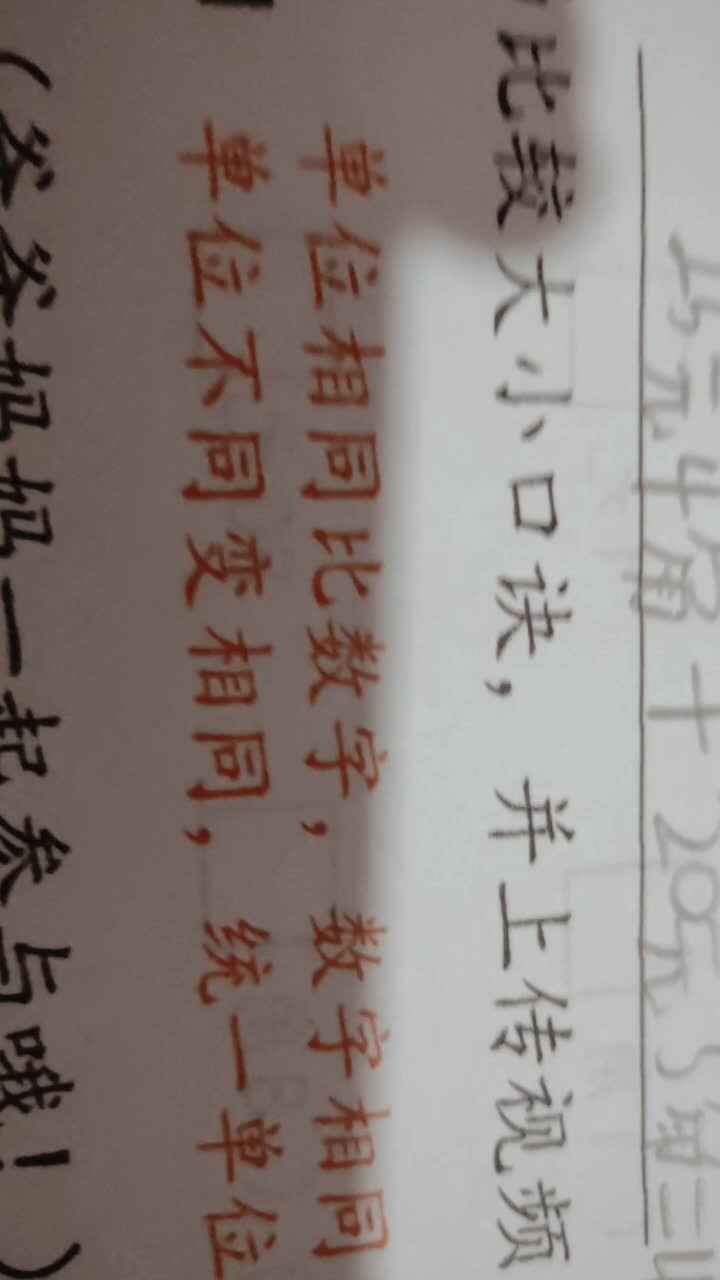 15元4角+20元5角=
比较大小口诀，并上传视频
单位相同比数字，数字相同
单位不同变相同，统一单位
（爷爷妈妈一起参与哦！）